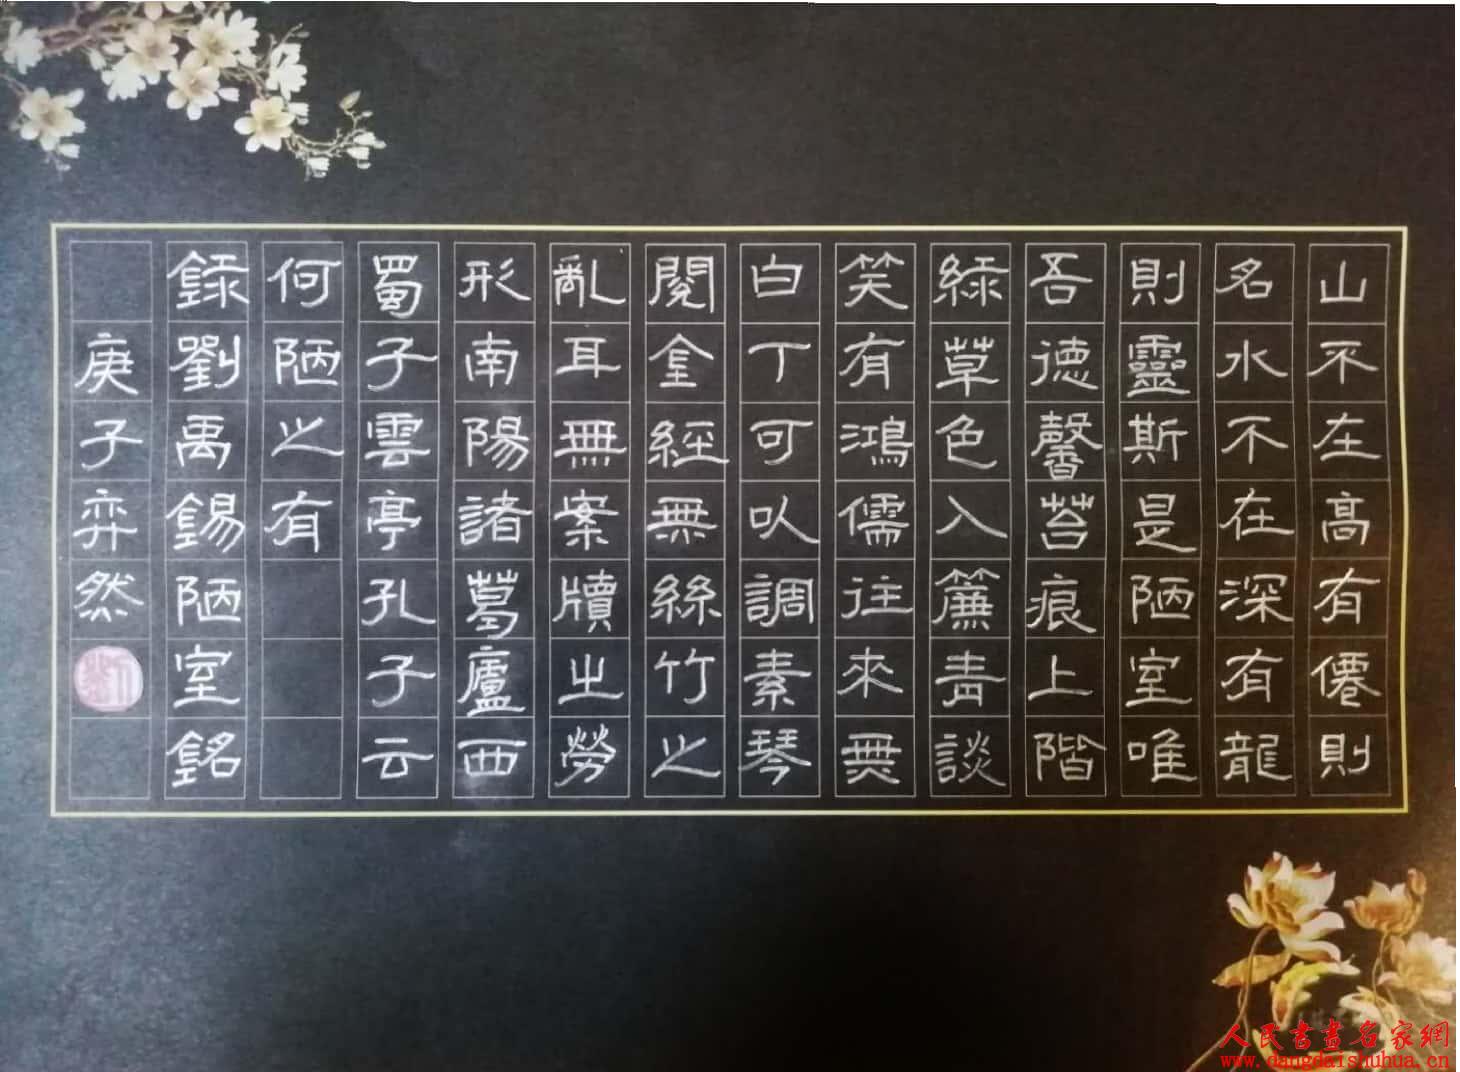 山不在高有僊則
名水不在深有龍
則靈斯是陋室唯
吾德馨苔痕上階
綠草色入簾青談
笑有鴻儒往來無
白丁可以調素琴
閱金經無絲竹之
亂耳無案牘之勞
形南陽諸葛廬西
蜀子雲亭孔子云
何陋之有
錄劉禹錫陋室銘
庚子弈然
人民書畫名家網
www.dangdaishuhua.cn